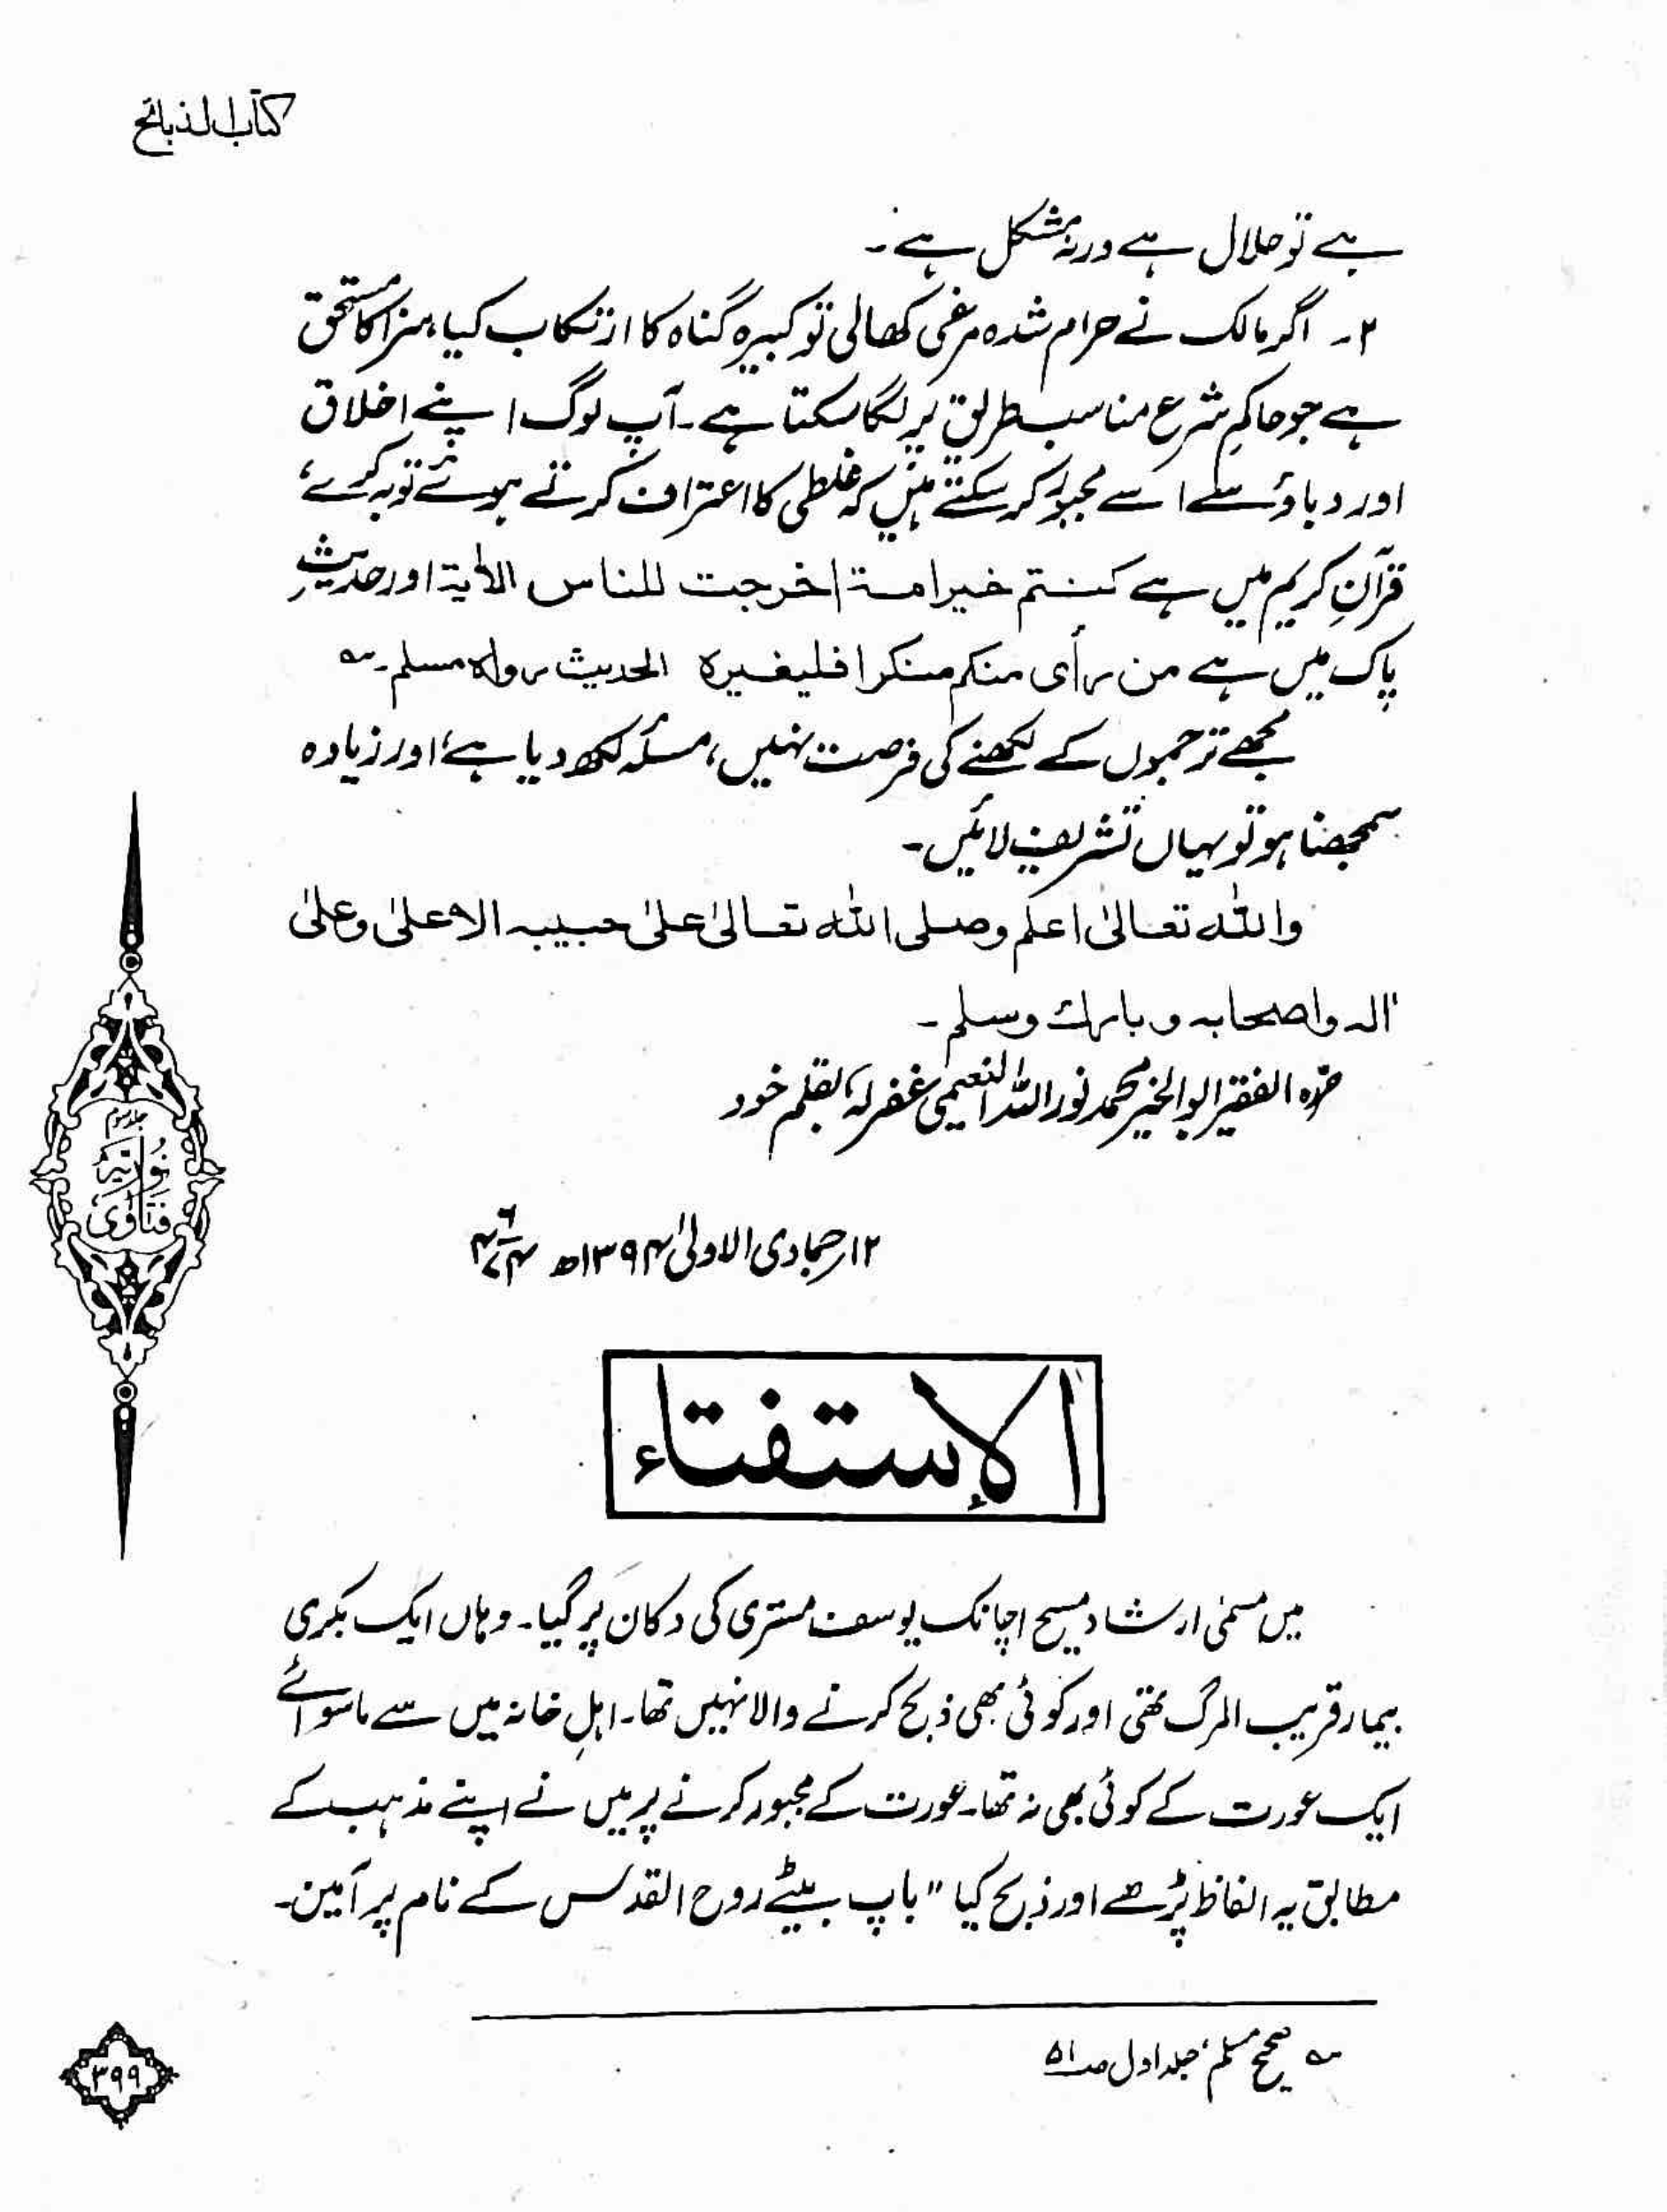 کتاب الذبائح
ہے تو حلال ہے ورنہ مشکل ہے۔
۲۔ اگر مالک نے حرام شدہ مرغی کھالی تو کبیرہ گناہ کا ارتکاب کیا، سزا کا مستحق
ہے جو حاکمِ شرع مناسب طریق پر لگا سکتا ہے۔ آپ لوگ اپنے اخلاق
اور دباؤ سے اسے مجبور کر سکتے ہیں کہ غلطی کا اعتراف کرتے ہوئے توبہ کرے،
قرآنِ کریم میں ہے کنتم خیر امة اخرجت للناس الاٰیة اور حدیثِ
پاک میں ہے من رأی منکم منکرا فلیغیرہ الحدیث رواہ مسلم۔؎
مجھے ترجموں کے لکھنے کی فرصت نہیں، مسئلہ لکھ دیا ہے، اور زیادہ
سمجھنا ہو تو یہاں تشریف لائیں۔
واللہ تعالیٰ اعلم وصلی اللہ تعالیٰ علیٰ حبیبہ الاعلیٰ وعلیٰ
اٰلہ واصحابہ وبارك وسلم۔
حرّہ الفقیر ابوالخیر محمد نور اللہ النعیمی غفرلہٗ بقلم خود
۱۲؍جمادی الاولیٰ ۱۳۹۴ھ ۴/۶/۷۴
الإستفتاء
میں مسمّٰی ارشاد مسیح اچانک یوسف مستری کی دکان پر گیا۔ وہاں ایک بکری
بیمار قریب المرگ تھی اور کوئی بھی ذبح کرنے والا نہیں تھا۔ اہلِ خانہ میں سے ماسوائے
ایک عورت کے کوئی بھی نہ تھا۔ عورت کے مجبور کرنے پر میں نے اپنے مذہب کے
مطابق یہ الفاظ پڑھے اور ذبح کیا "باپ بیٹے روح القدس کے نام پر آمین۔
؎ صحیح مسلم، جلد اول صـ۵۱
جلد سوم
نوریہ
فتاویٰ
۳۹۹